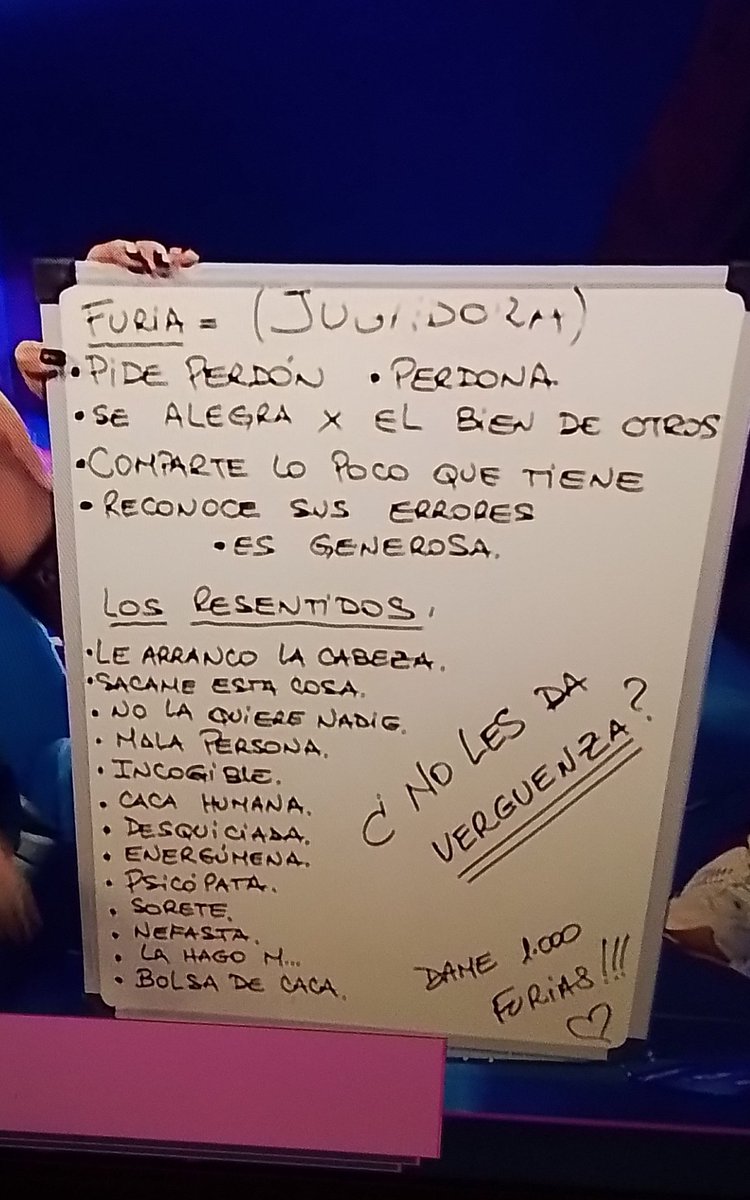 FURIA = (JUGADORA)
• PIDE PERDÓN • PERDONA.
• SE ALEGRA X EL BIEN DE OTROS
• COMPARTE LO POCO QUE TIENE
• RECONOCE SUS ERRORES
• ES GENEROSA.
LOS RESENTIDOS.
• LE ARRANCO LA CABEZA.
• SACAME ESTA COSA.
• NO LA QUIERE NADIE.
• MALA PERSONA.
• INCOGIBLE.
• CACA HUMANA.
• DESQUICIADA.
• ENERGÚMENA.
• PSICÓPATA.
• SORETE.
• NEFASTA.
• LA HAGO M...
• BOLSA DE CACA.
¿ NO LES DA
VERGUENZA?
DAME 1.000
FURIAS!!!